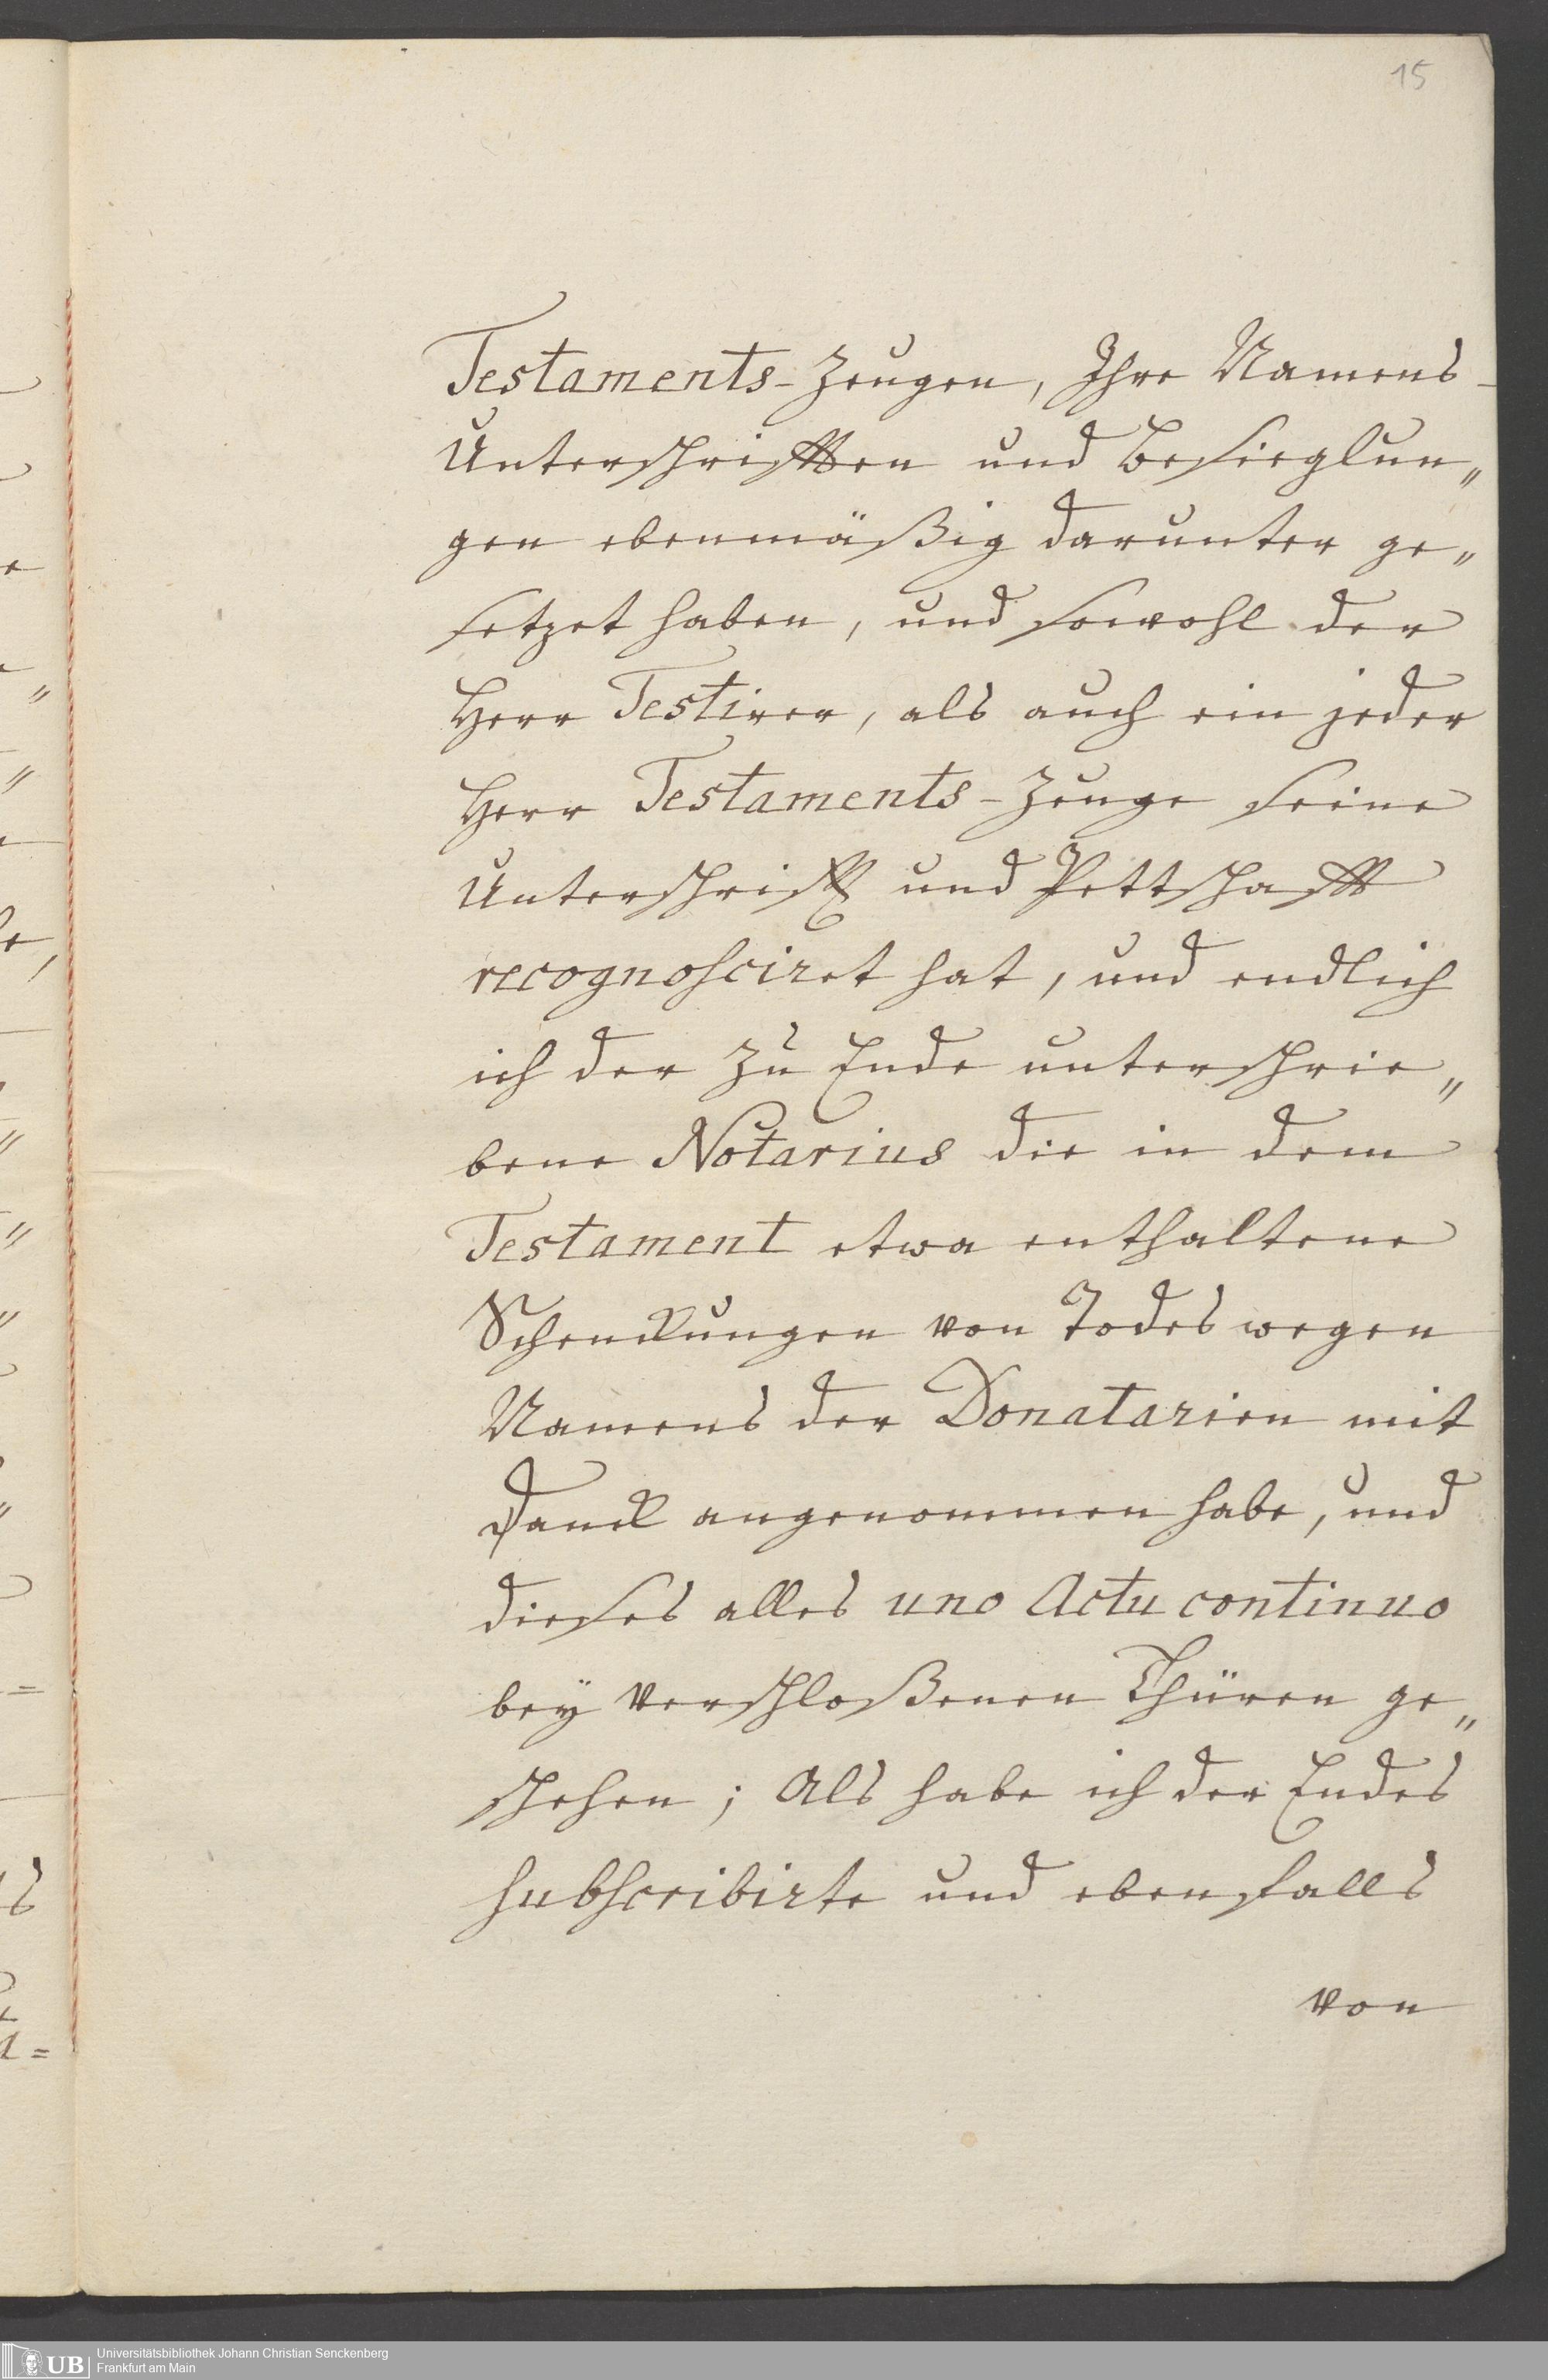 15
Testaments-Zeugen, Ihre Namens-
Unterschrifften und Besieglun„
gen ebenmäßig darunter ge„
setzet haben, und sowohl der
Herr Testirer, als auch ein jeder
Herr Testaments-Zeuge seine
Unterschrifft und Pettschafft
recognosciret hat, und endlich
ich der zu Ende unterschrie„
bene Notarius die in dem
Testament etwa enthaltene
Schenckungen von Todes wegen
Namens der Donatarien mit
Danck angenommen habe, und
dieses alles uno Actu continuo
bey verschloßenen Thüren ge„
schehen; Als habe ich der Endes
subscribirte und ebenfalls
von
UB
Universitätsbibliothek Johann Christian Senckenberg
Frankfurt am Main